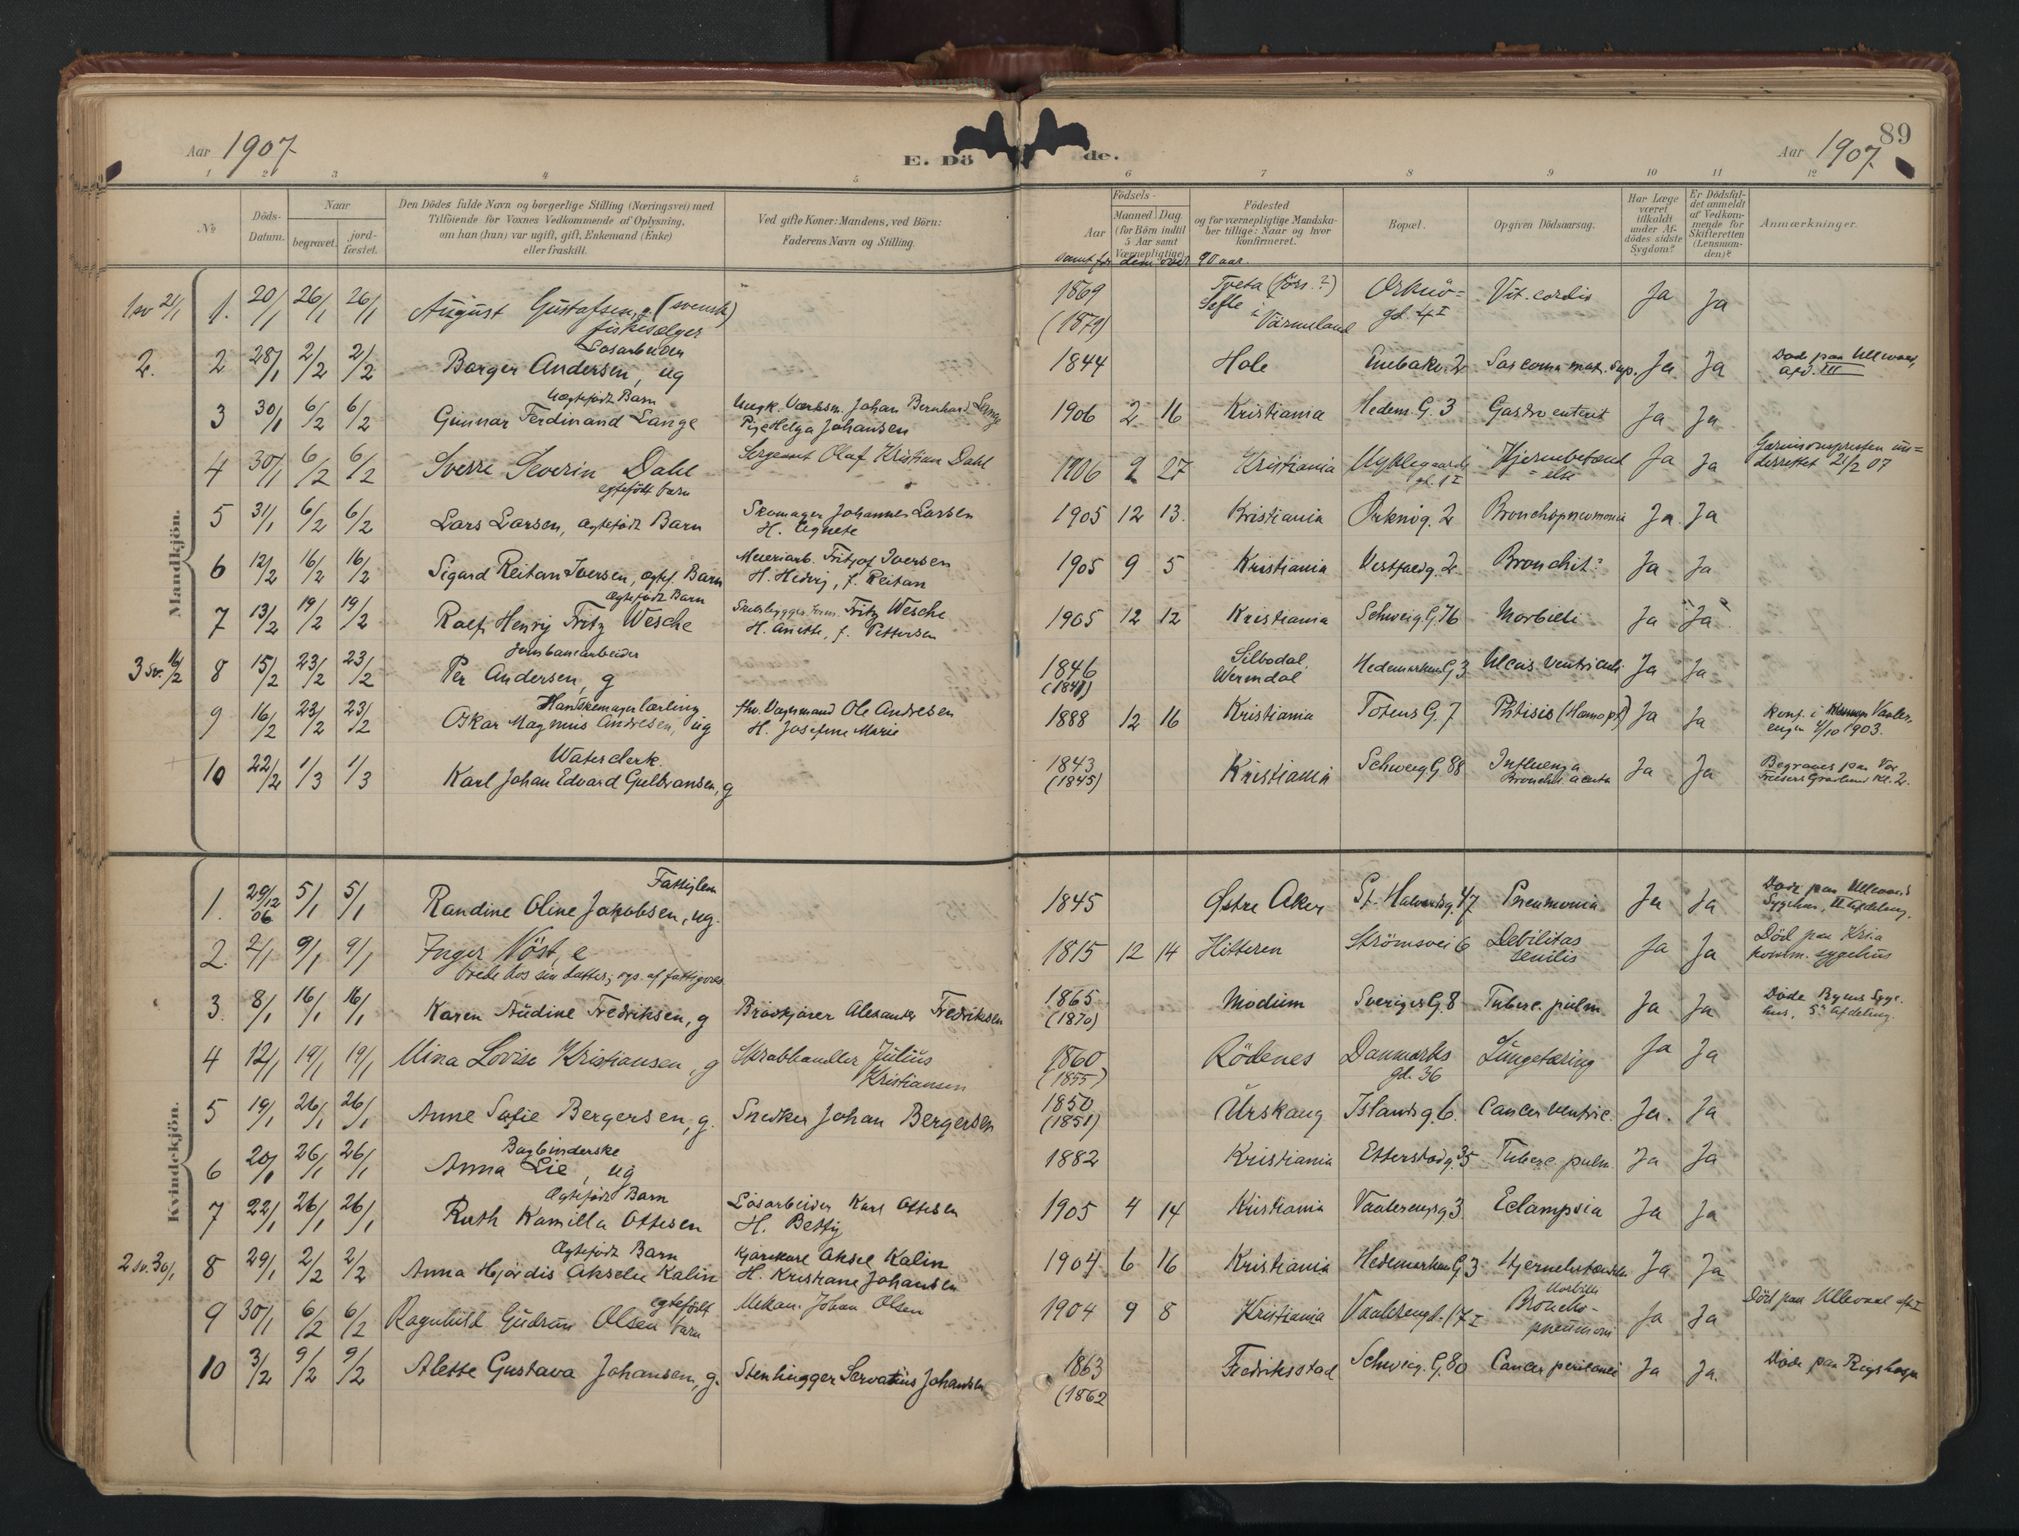 Aar 1907
E. Dö
de.
Aar 1907.
89
1 2 3 4 5 6 7 8 9 10 11 12
No
Döds-Datum.
Naar
begravet.
jordfæstet.
Den Dödes fulde Navn og borgerlige Stilling (Næringsvei) med
Tilföiende for Voxnes Vedkommende af Oplysning,
om han (hun) var ugift, gift, Enkemand (Enke)
eller fraskilt.
Ved gifte Koner: Mandens, ved Börn:
Faderens Navn og Stilling.
Födsels-
Aar
Maaned Dag
(for Börn indtil
5 Aar samt
Værnepligtige)
samt for dem over 90 aar.
Födested
og for værnepligtige Mandska-
ber tillige: Naar og hvor
konfirmeret.
Bopæl.
Opgiven Dödsaarsag.
Har Læge
været
tilkaldt
under Af-
dödes sidste
Sygdom?
Er Dödsfal-
det anmeldt
af Vedkom-
mende for
Skifteretten
(Lensman-
den)?
Anmærkninger.
Mandkjön.
1 sv 21/1 1. 20/1 26/1 26/1 August Gustafsen, g (svensk) fiskesælger 1869 (1879) Tveta (förs.?) Sefle i Värmeland Orknö- gd. 4 I Vit. cordis Ja Ja
2. 2 28/1 2/2 2/2 Løsarbeider Borger Andersen, ug 1844 Hole Enebakv. 2 Ja Ja Døde paa Ullevaal, afd. III
3 30/1 6/2 6/2 Uægtefødt Barn Gunnar Ferdinand Lange Ungk. Værksm. Johan Bernhard Lange Pige Helga Johansen 1906 2 16 Kristiania Hedem. G. 3 Gastroenterit Ja Ja
4 30/1 6/2 6/2 Sverre Severin Dahl egtefödt barn Sergeant Olaf Kristian Dahl 1906 9 27 Kristiania Nyklegaards gd. 1 I Hjernebetænd- else Ja Ja Garnisonspresten un- derrettet 21/2 07
5 31/1 6/2 6/2 Lars Larsen, ægtefødt Barn Skomager Johannes Larsen H. Agnete 1905 12 13. Kristiania Orknög. 2 Bronchopneumonia Ja. Ja
6 12/2 16/2 16/2 Sigurd Reitan Iversen, ægtef. Barn Meieriarb. Fritjof Iversen H. Hedvig, f. Reitan 1905 9 5 Kristiania Vestfoldg. 2 Bronchit? Ja Ja
7 13/2 19/2 19/2 Ægtefødt Barn Rolf Henry Fritz Wesche Fritz Wesche H. Anette, f. Pettersen 1905 12 12 Kristiania Schweig. G. 76 Morbilli Ja "Ja".
3 sv. 16/2 8 15/2 23/2 23/2 Jernbanearbeider Per Andersen, g 1846 (1841) Silbodal, Wermdal Hedemarken G. 3 Ulcus ventriculi Ja Ja
9 16/2 23/2 23/2 Handskemagerlærling Oskar Magnus Andresen, ug fhv. Vognmand Ole Andresen H. Josefine Marie 1888 12 16 Kristiania Totens G. 7 Phtisis (Hæmopt) Ja Ja Konf. i Vaaler, engen 4/10 1903.
10 22/2 1/3 1/3 Waterclerk. Karl Johan Edvard Gulbransen, g 1843 (1845) Kristiania Schweig G. 88 Influenza Bronchit. acuta Ja Ja Begraves paa Vor Frelsers Gravlund Kl. 2.
Kvindekjön.
1. 29/12 06 5/1 5/1 Fattiglem Randine Oline Jakobsen, ug. 1845 Østre Aker St. Halvardsg. 47 Pneumonia Ja Ja Døde paa Ullevaal Sygehus, II Afdeling.
2. 2/1 9/1 9/1 Inger Nöst, e boede hos sin datter; af fattigvæs. 1815 12 14 Hitteren Strömsvei 6 Debilitas senilis Ja Ja Död paa Kria komm. sygehus
3. 8/1 16/1 16/1 Karen Audine Fredriksen, g Brødkjører Alexander Fredriksen 1865 (1870) Modum Sveriges G. 8 Tuberc. pulm Ja Ja Døde Byens Syge- hus, 5te Afdeling.
4 12/1 19/1 19/1 Mina Lovise Kristiansen, g Skrabhandler Julius Kristiansen 1860 (1855) Rödenes Danmarks gd. 36 Lungetæring Ja Ja
5 19/1 26/1 26/1 Anne Sofie Bergersen, g. Snedker Johan Bergersen 1850 (1851) Urskaug Islandsg. 6. Cancer ventric. Ja. Ja
6 20/1 26/1 26/1 Bogbinderske Anna Lie, ug 1882 Kristiania Etterstadg. 35 Tuberc. pulm. Ja Ja
7 22/1 26/1 26/1 Ægtefødt Barn Ruth Kamilla Ottesen Løsarbeider Karl Ottesen H. Betty 1905 4 14 Kristiania Vaalerengg. 3. Eclampsia Ja Ja
2 sv. 30/1 8 29/1 2/2 2/2 Ægtefødt Barn Anna Hjørdis Akselie Kalin Kjørekarl Aksel Kalin H. Kristiane Johansen 1904 6 16 Kristiania Hedemarken G. 3 Hjernebetændelse Ja Ja
9 30/1 6/2 6/2 Ragnhild Gudrun Olsen egtefödt barn Mekan. Johan Olsen 1904 9 8 Kristiania Vaalerengd. 17 I Morbilli Broncho- pneumoni Ja Ja Död paa Ullevaal afd. I
10 3/2 9/2 9/2 Alette Gustava Johansen, g. Stenhugger Servatius Johansen 1863 (1862 Fredriksstad Schweig. G. 80 Cancer peritonei Ja Ja. Døde paa Rigshosp.